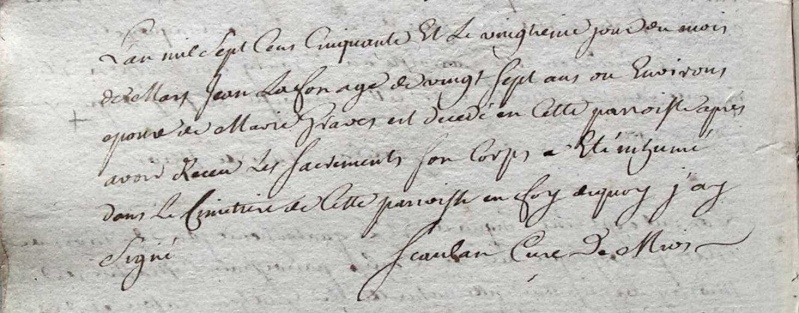 L'an mil sept Cens Cinquante Et Le vingtieme jour du mois
de Mars Jean Lafon age de vingt Sept ans ou Environs
epoux de Marie Graves est decedé en Cette parroisse apres
avoir Receu Les Sacrements Son Corps a Eté inhumé
dans Le Cimetiere de Cette parroisse en foy dequoy j'ay
Signé Curé De Mios